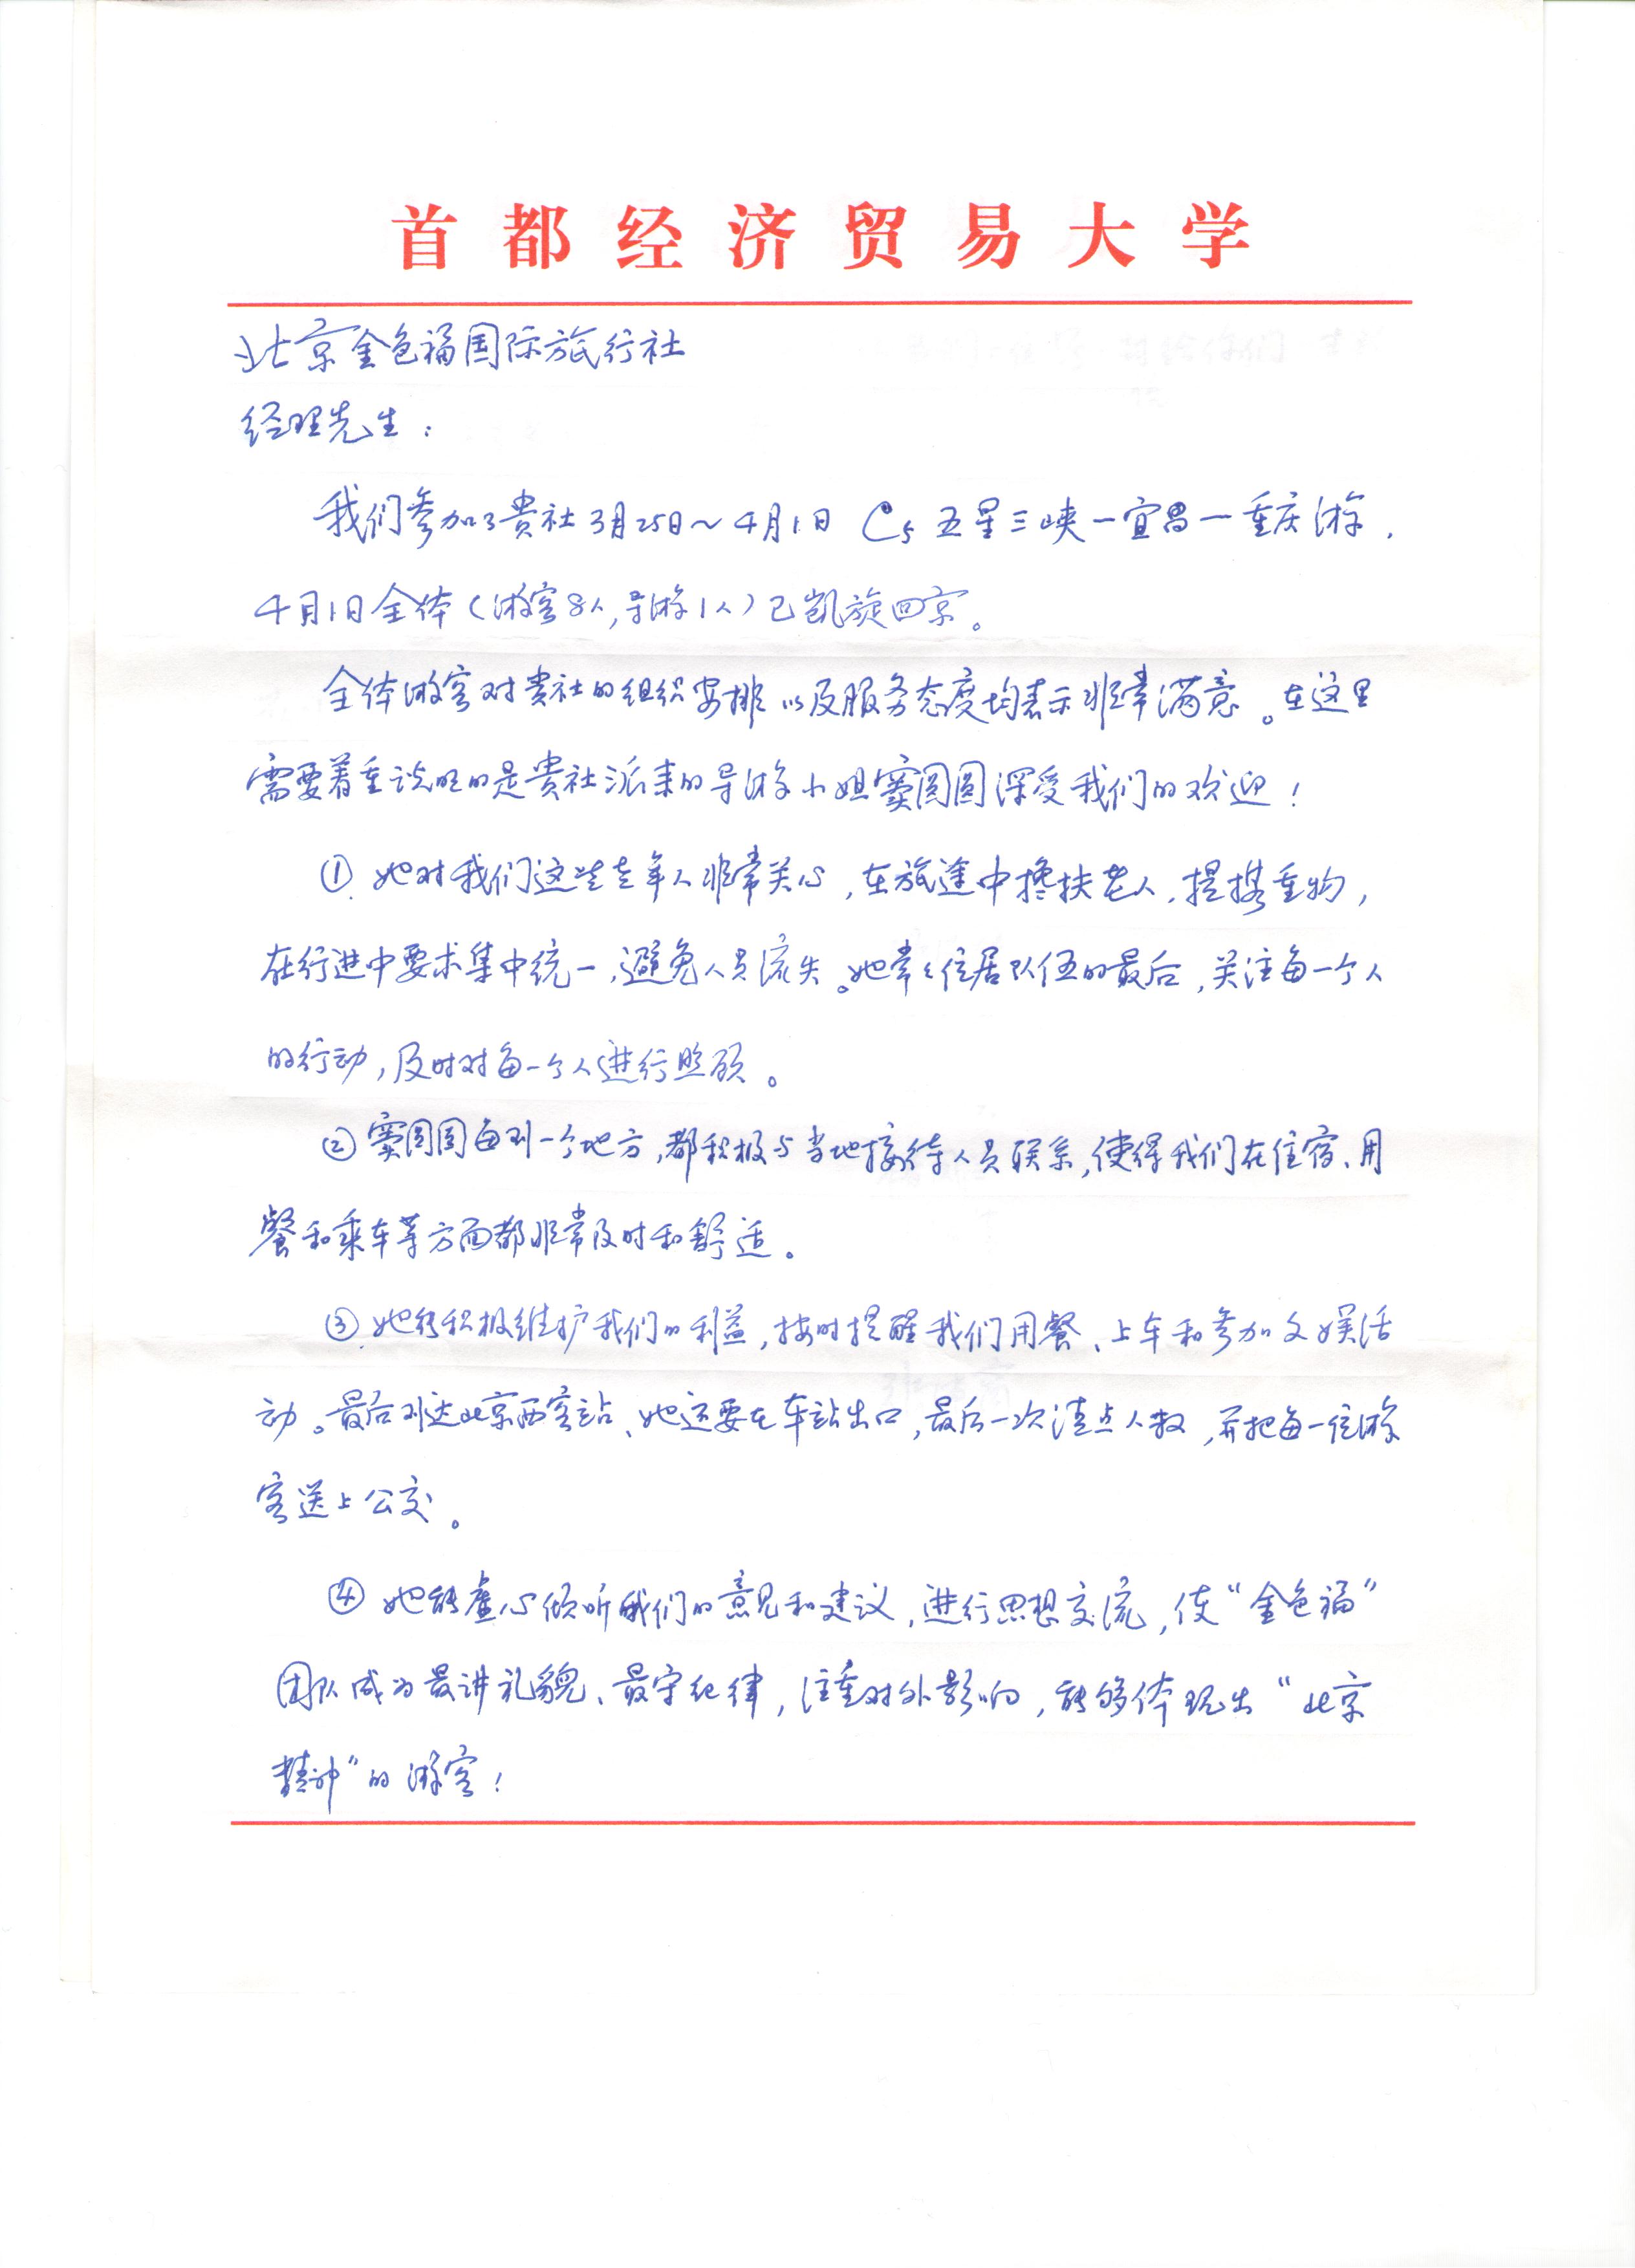 首都经济贸易大学
北京金色福国际旅行社
经理先生：
我们参加了贵社3月25日～4月1日 C5 五星三峡一宜昌一重庆游，
4月1日全体（游客8人，导游1人）已凯旋回京。
全体游客对贵社的组织安排以及服务态度均表示非常满意。在这里
需要着重说明的是贵社派来的导游小姐窦圆圆深受我们的欢迎！
① 她对我们这些老年人非常关心，在旅途中搀扶老人，提携重物，
在行进中要求集中统一，避免人员流失。她常々位居队伍的最后，关注每一个人
的行动，及时对每一个人进行照顾。
② 窦圆圆每到一个地方，都积极与当地接待人员联系，使得我们在住宿、用
餐和乘车等方面都非常及时和舒适。
③ 她能积极维护我们的利益，按时提醒我们用餐、上车和参加文娱活
动。最后到达北京西客站、她还要在车站出口，最后一次清点人数，并把每一位游
客送上公交。
④ 她能虚心倾听我们的意见和建议，进行思想交流，使“金色福”
团队成为最讲礼貌、最守纪律，注重对外影响，能够体现出“北京
精神”的游客！